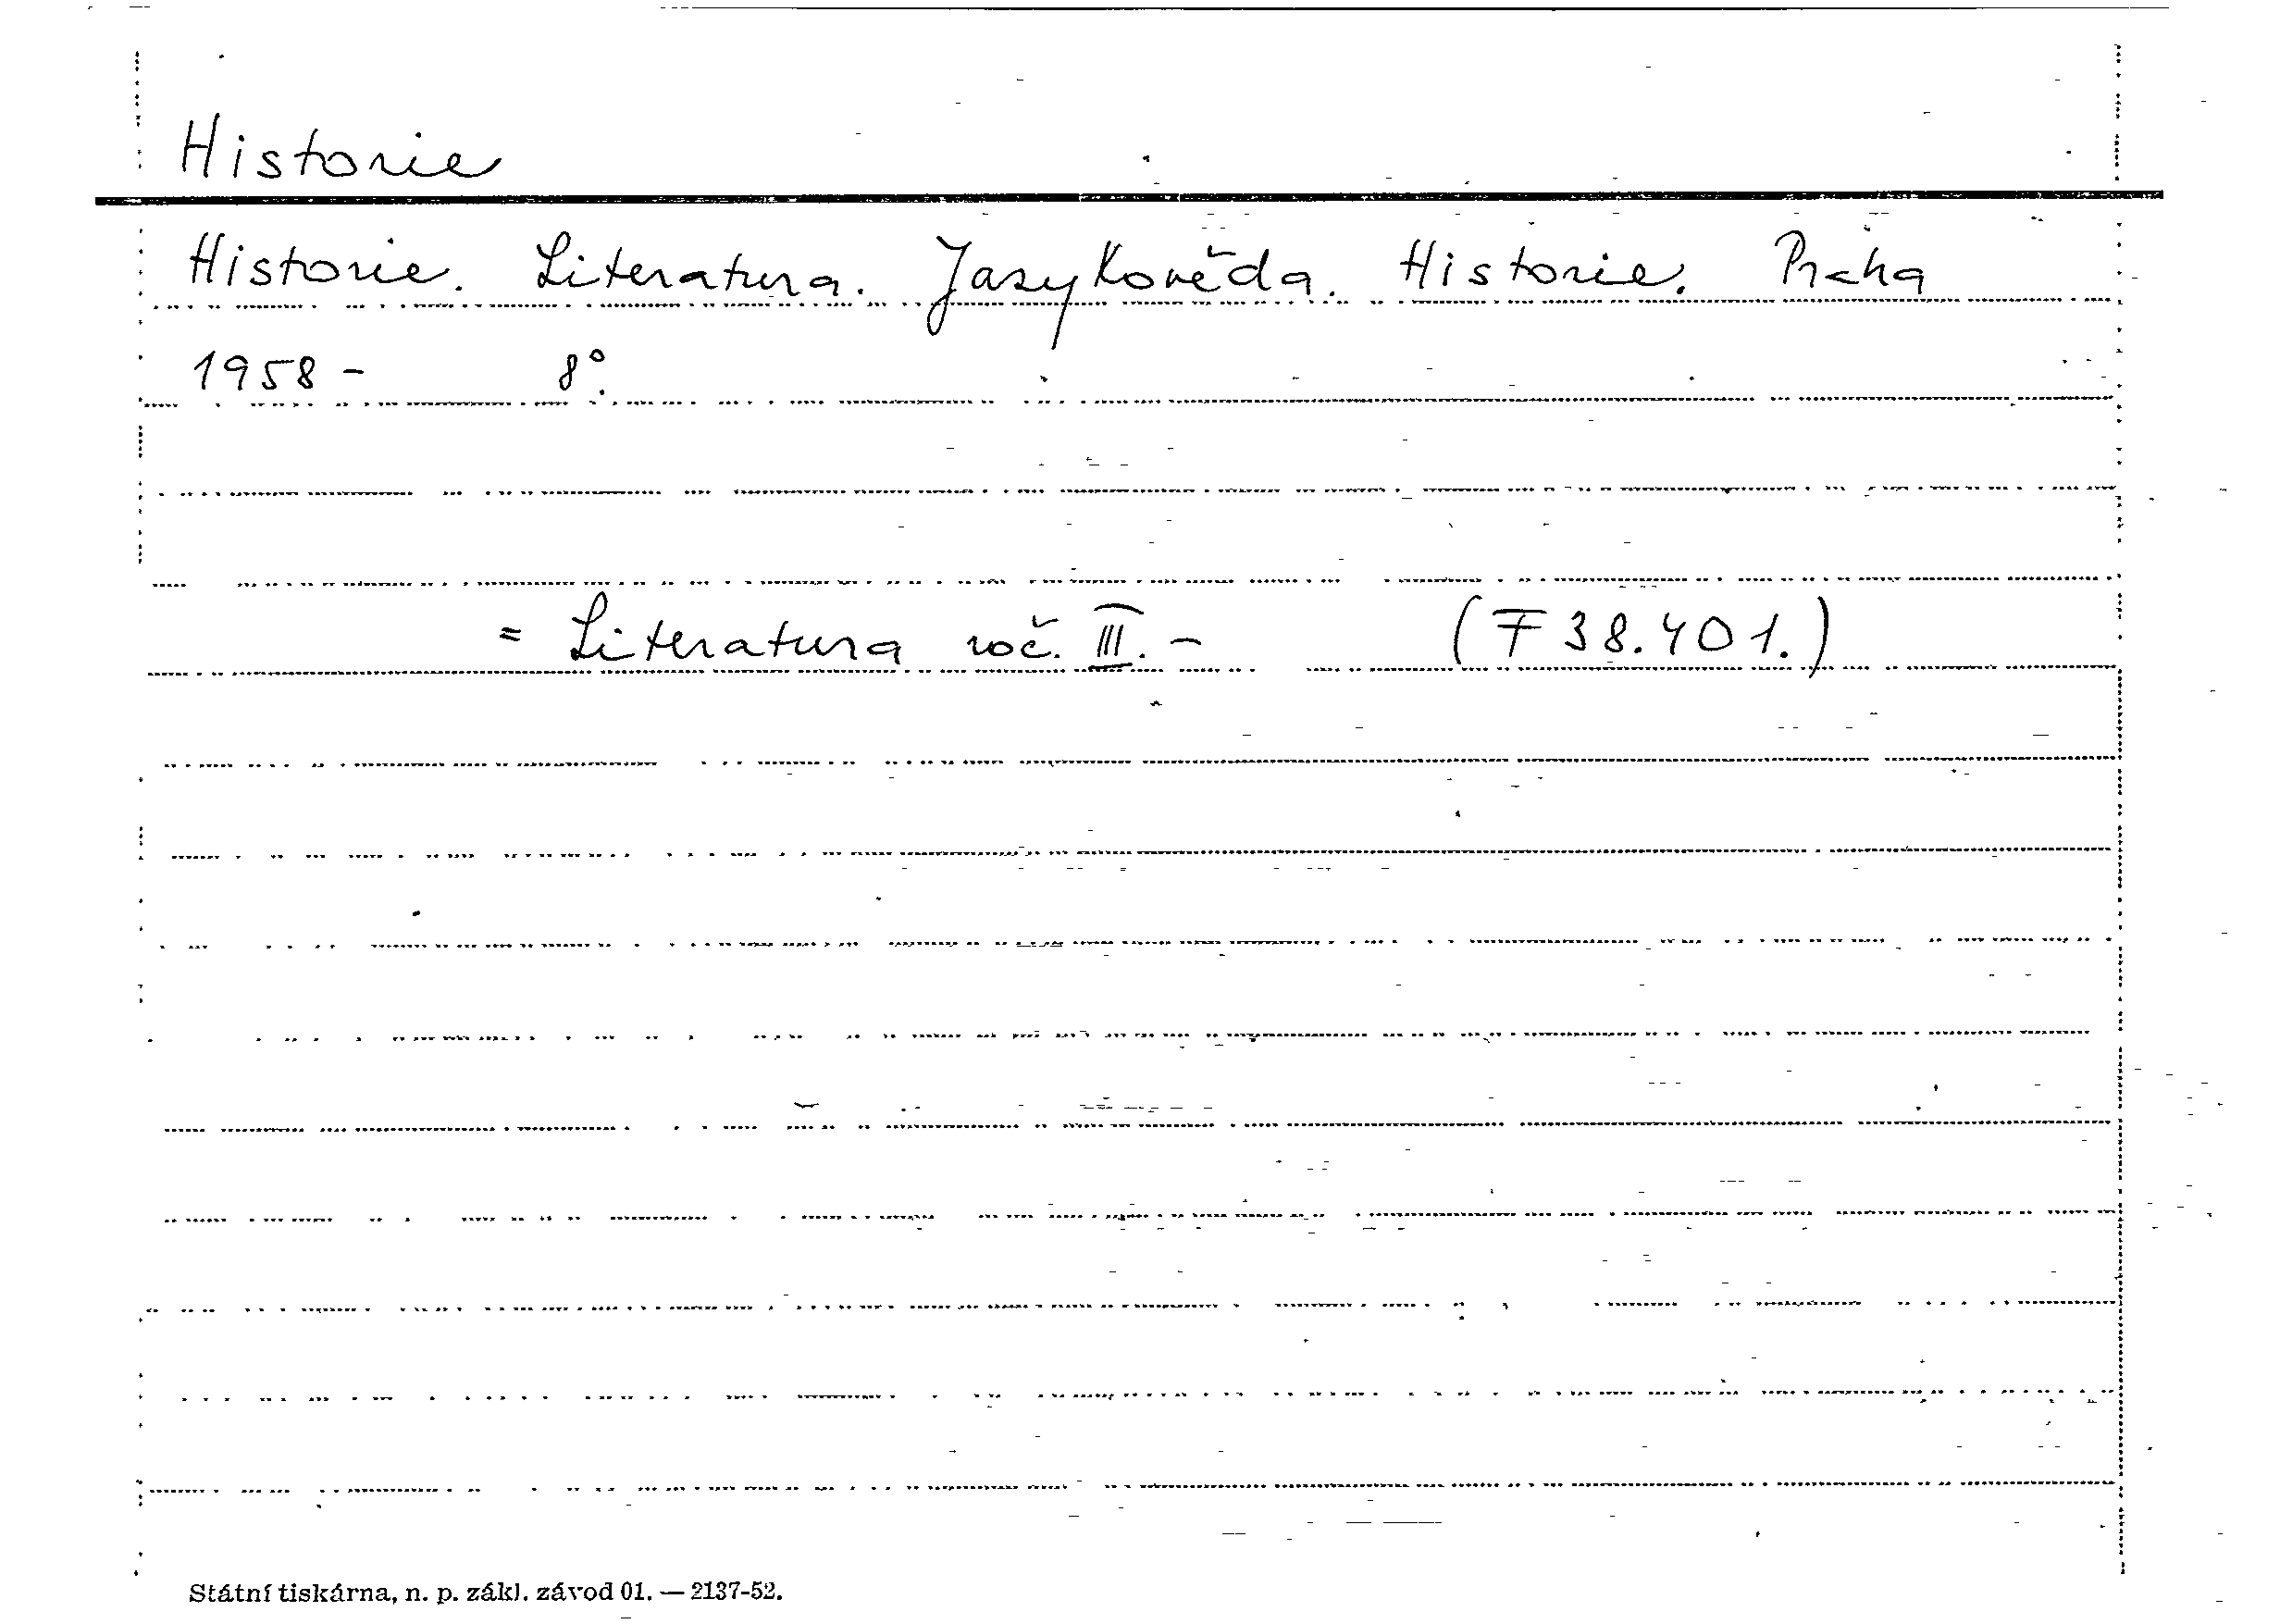 Historie
Historie. Literatura. Jazykověda. Historie. Praha
1958 - 8°.
= Literatura roč. III. - (F 38.401.)
Státní tiskárna, n. p. zákl. závod 01. — 2137-52.